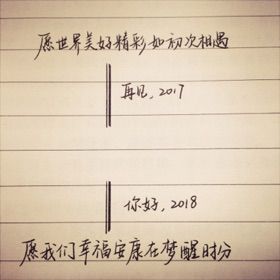 愿世界美好精彩如初次相遇
再见，2017
你好，2018
愿我们幸福安康在梦醒时分